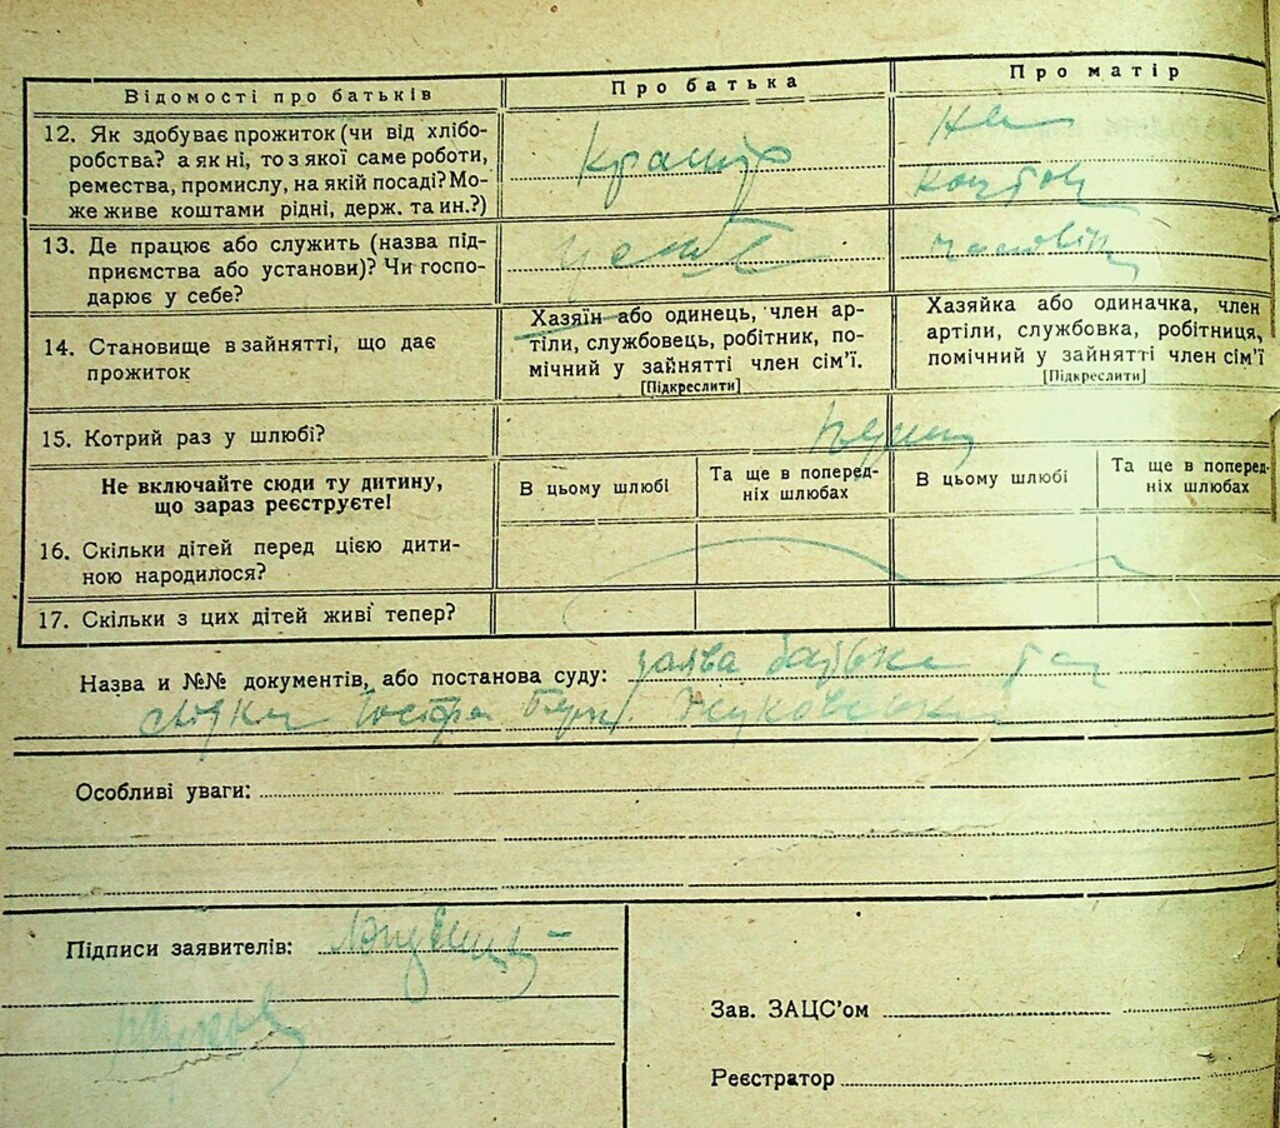 Відомості про батьків
Про батька
Про матір
12. Як здобуває прожиток (чи від хлібо-
робства? а як ні, то з якої саме роботи,
ремества, промислу, на якій посаді? Мо-
же живе коштами рідні, держ. та ин.?)
Крамар
На
коштов
13. Де працює або служить (назва під-
приємства або установи)? Чи госпо-
дарює у себе?
у себе
чоловіка
14. Становище в зайнятті, що дає
прожиток
Хазяїн або одинець, член ар-
тіли, службовець, робітник, по-
мічний у зайнятті член сім'ї.
[Підкреслити]
Хазяйка або одиначка, член
артіли, службовка, робітниця,
помічний у зайнятті член сім'ї
[Підкреслити]
15. Котрий раз у шлюбі?
Не включайте сюди ту дитину,
що зараз реєструєте!
В цьому шлюбі
Та ще в поперед-
ніх шлюбах
В цьому шлюбі
Та ще в поперед-
ніх шлюбах
16. Скільки дітей перед цією дити-
ною народилося?
17. Скільки з цих дітей живі тепер?
Назва и №№ документів, або постанова суду: заява батька та
свідка Іосифа Жуковськ
Особливі уваги:
Підписи заявителів:
Зав. ЗАЦС'ом
Реєстратор